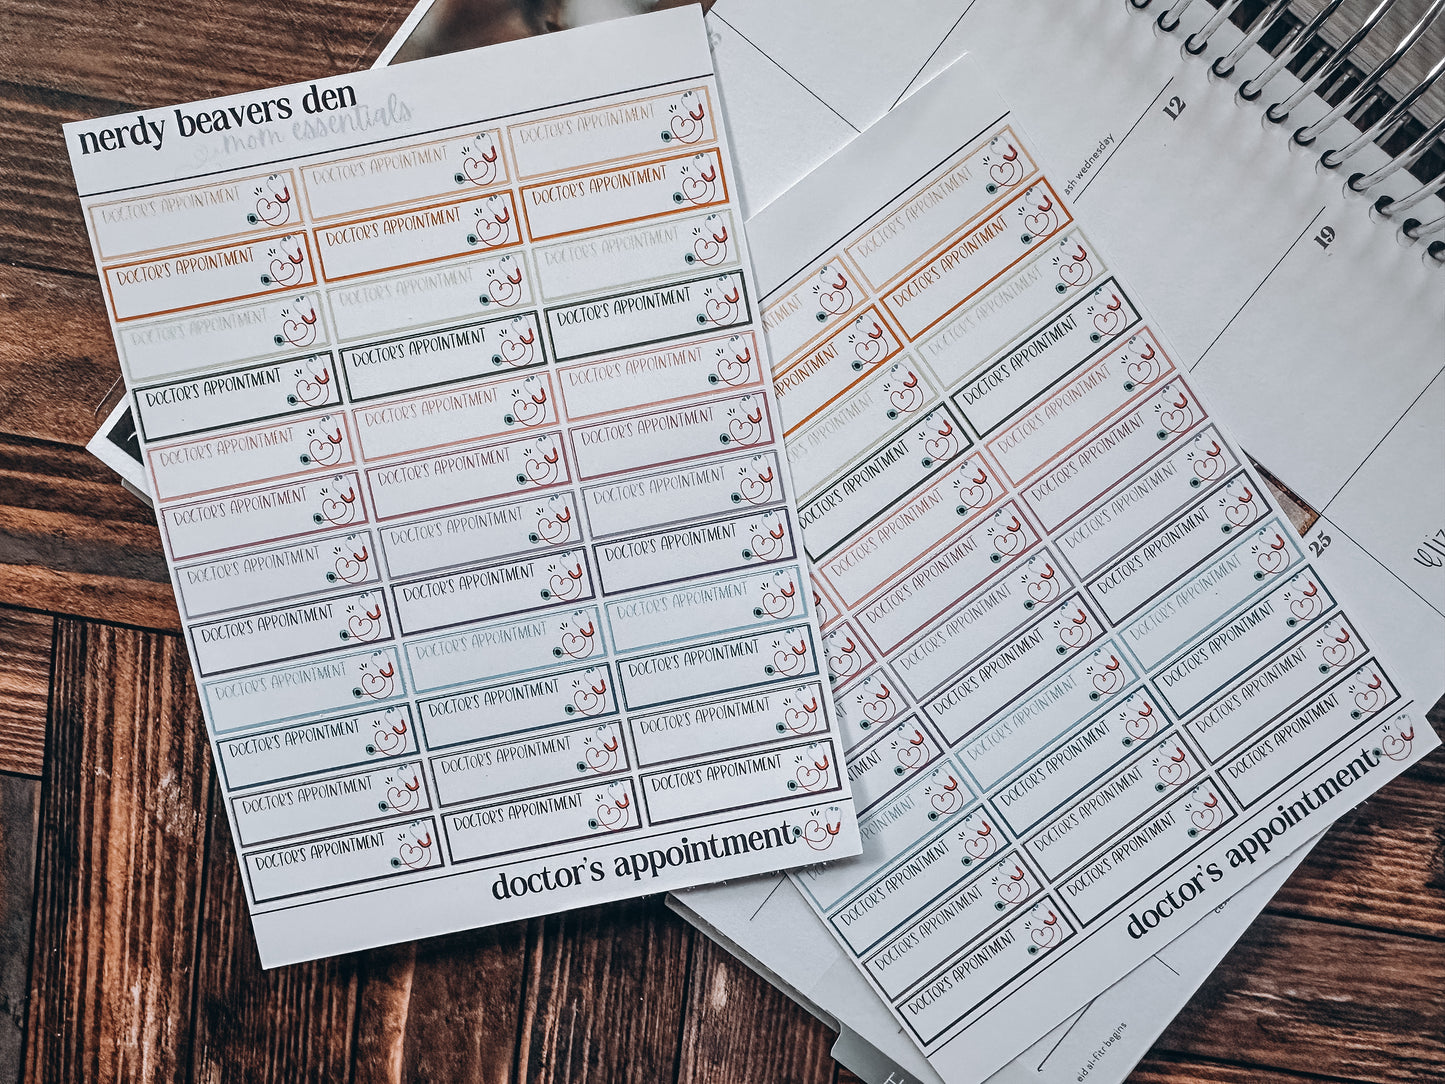 nerdy beavers den
mom essentials
DOCTOR'S APPOINTMENT DOCTOR'S APPOINTMENT DOCTOR'S APPOINTMENT
DOCTOR'S APPOINTMENT DOCTOR'S APPOINTMENT DOCTOR'S APPOINTMENT
DOCTOR'S APPOINTMENT DOCTOR'S APPOINTMENT DOCTOR'S APPOINTMENT
DOCTOR'S APPOINTMENT DOCTOR'S APPOINTMENT DOCTOR'S APPOINTMENT
DOCTOR'S APPOINTMENT DOCTOR'S APPOINTMENT DOCTOR'S APPOINTMENT
DOCTOR'S APPOINTMENT DOCTOR'S APPOINTMENT DOCTOR'S APPOINTMENT
DOCTOR'S APPOINTMENT DOCTOR'S APPOINTMENT DOCTOR'S APPOINTMENT
DOCTOR'S APPOINTMENT DOCTOR'S APPOINTMENT DOCTOR'S APPOINTMENT
DOCTOR'S APPOINTMENT DOCTOR'S APPOINTMENT DOCTOR'S APPOINTMENT
DOCTOR'S APPOINTMENT DOCTOR'S APPOINTMENT DOCTOR'S APPOINTMENT
DOCTOR'S APPOINTMENT DOCTOR'S APPOINTMENT DOCTOR'S APPOINTMENT
DOCTOR'S APPOINTMENT DOCTOR'S APPOINTMENT DOCTOR'S APPOINTMENT
doctor's appointment
DOCTOR'S APPOINTMENT
APPOINTMENT DOCTOR'S APPOINTMENT
APPOINTMENT DOCTOR'S APPOINTMENT
DOCTOR'S APPOINTMENT DOCTOR'S APPOINTMENT
DOCTOR'S APPOINTMENT DOCTOR'S APPOINTMENT
DOCTOR'S APPOINTMENT DOCTOR'S APPOINTMENT
DOCTOR'S APPOINTMENT DOCTOR'S APPOINTMENT
DOCTOR'S APPOINTMENT DOCTOR'S APPOINTMENT
APPOINTMENT DOCTOR'S APPOINTMENT DOCTOR'S APPOINTMENT
DOCTOR'S APPOINTMENT DOCTOR'S APPOINTMENT DOCTOR'S APPOINTMENT
DOCTOR'S APPOINTMENT DOCTOR'S APPOINTMENT DOCTOR'S APPOINTMENT
DOCTOR'S APPOINTMENT DOCTOR'S APPOINTMENT DOCTOR'S APPOINTMENT
doctor's appointment
12
ash wednesday
19
25
eid al-fitr begins